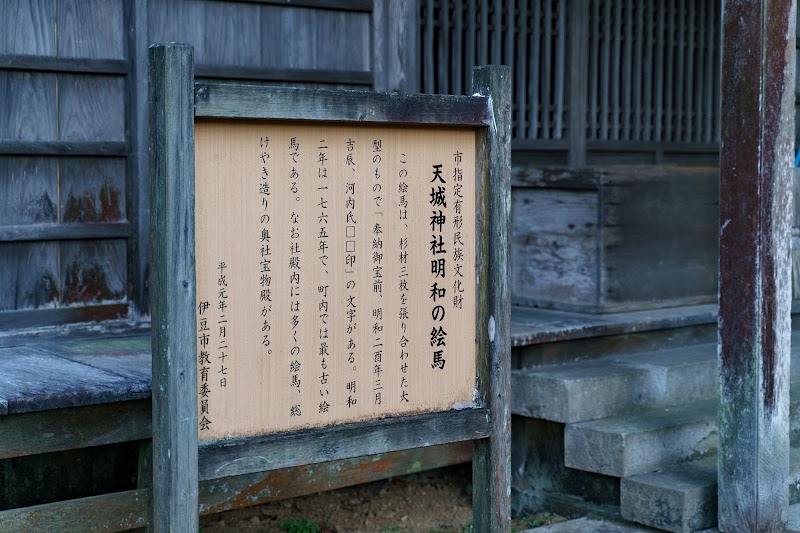 市指定有形民族文化財
天城神社明和の絵馬
この絵馬は、杉材三枚を張り合わせた大
型のもので「奉納御宝前、明和二酉年三月
吉辰、河内氏□□印」の文字がある。明和
二年は一七六五年で、町内では最も古い絵
馬である。なお社殿内には多くの絵馬、総
けやき造りの奥社宝物殿がある。
平成元年二月二十七日
伊豆市教育委員会